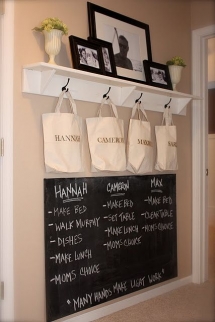 HANNAH
CAMERON
HANNAH
- MAKE BED
- WALK MURPHY
- DISHES
- MAKE LUNCH
- MOM'S CHOICE
CAMERON
- MAKE BED
- SET TABLE
- MAKE LUNCH
- MOM'S CHOICE
MAX
- MAKE BED
- CLEAR TABLE
- MAKE LUNCH
- MOM'S CHOICE
"MANY HANDS MAKE LIGHT WORK"